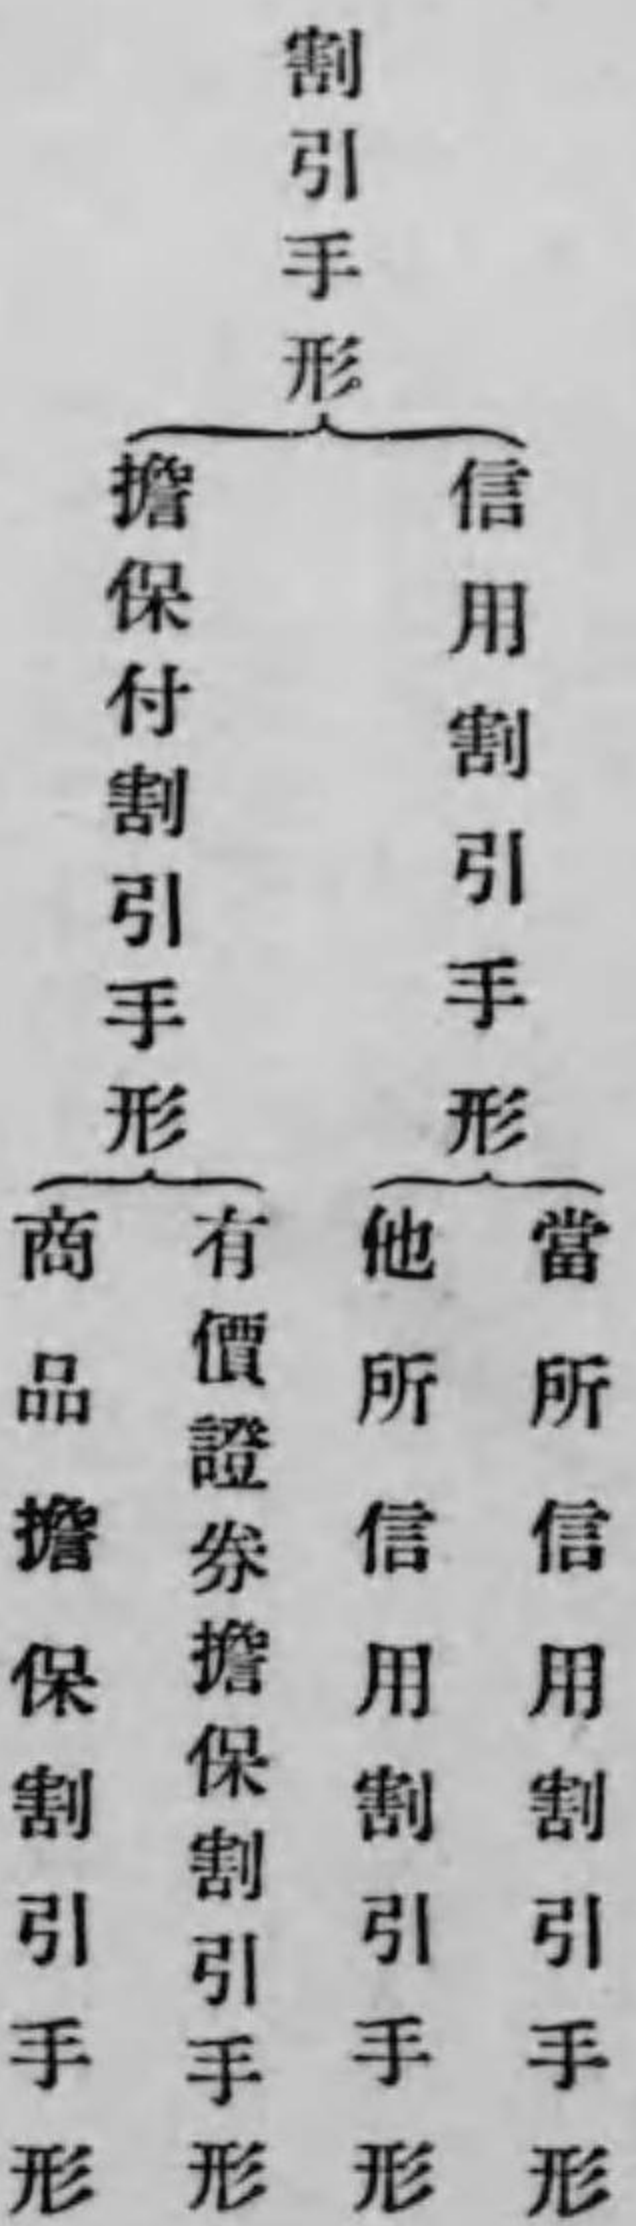 割引手形
信用割引手形
當所信用割引手形
他所信用割引手形
擔保付割引手形
有價證券擔保割引手形
商品擔保割引手形